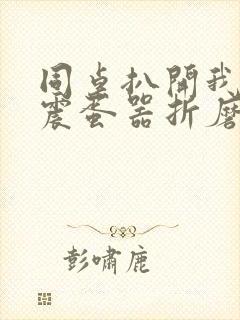 同桌扒開我
震蛋器折磨
彭嘯鹿